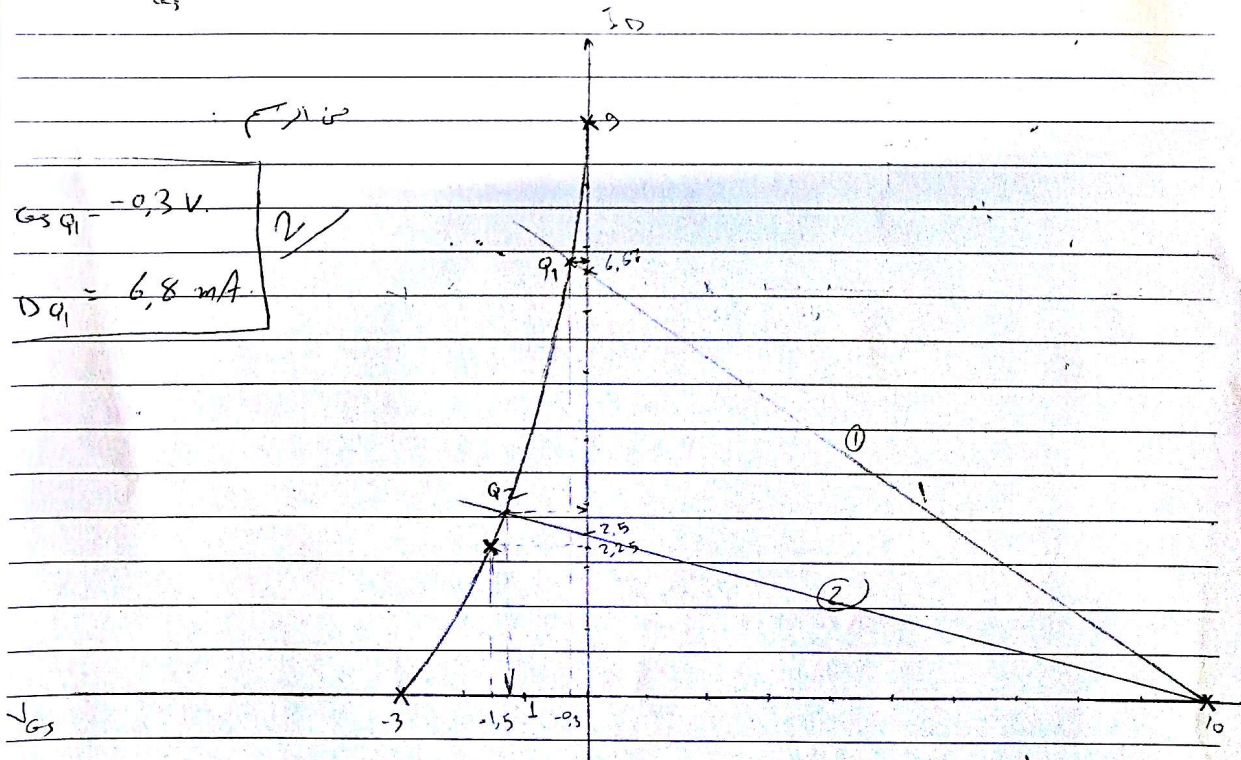 I_D
من الرسم :
9
GS Q1 = -0,3 V.
2
Q1
6,67
D Q1 = 6,8 mA.
①
Q2
2,5
2,25
②
V_GS
-3
-1,5
-1
-0,3
10